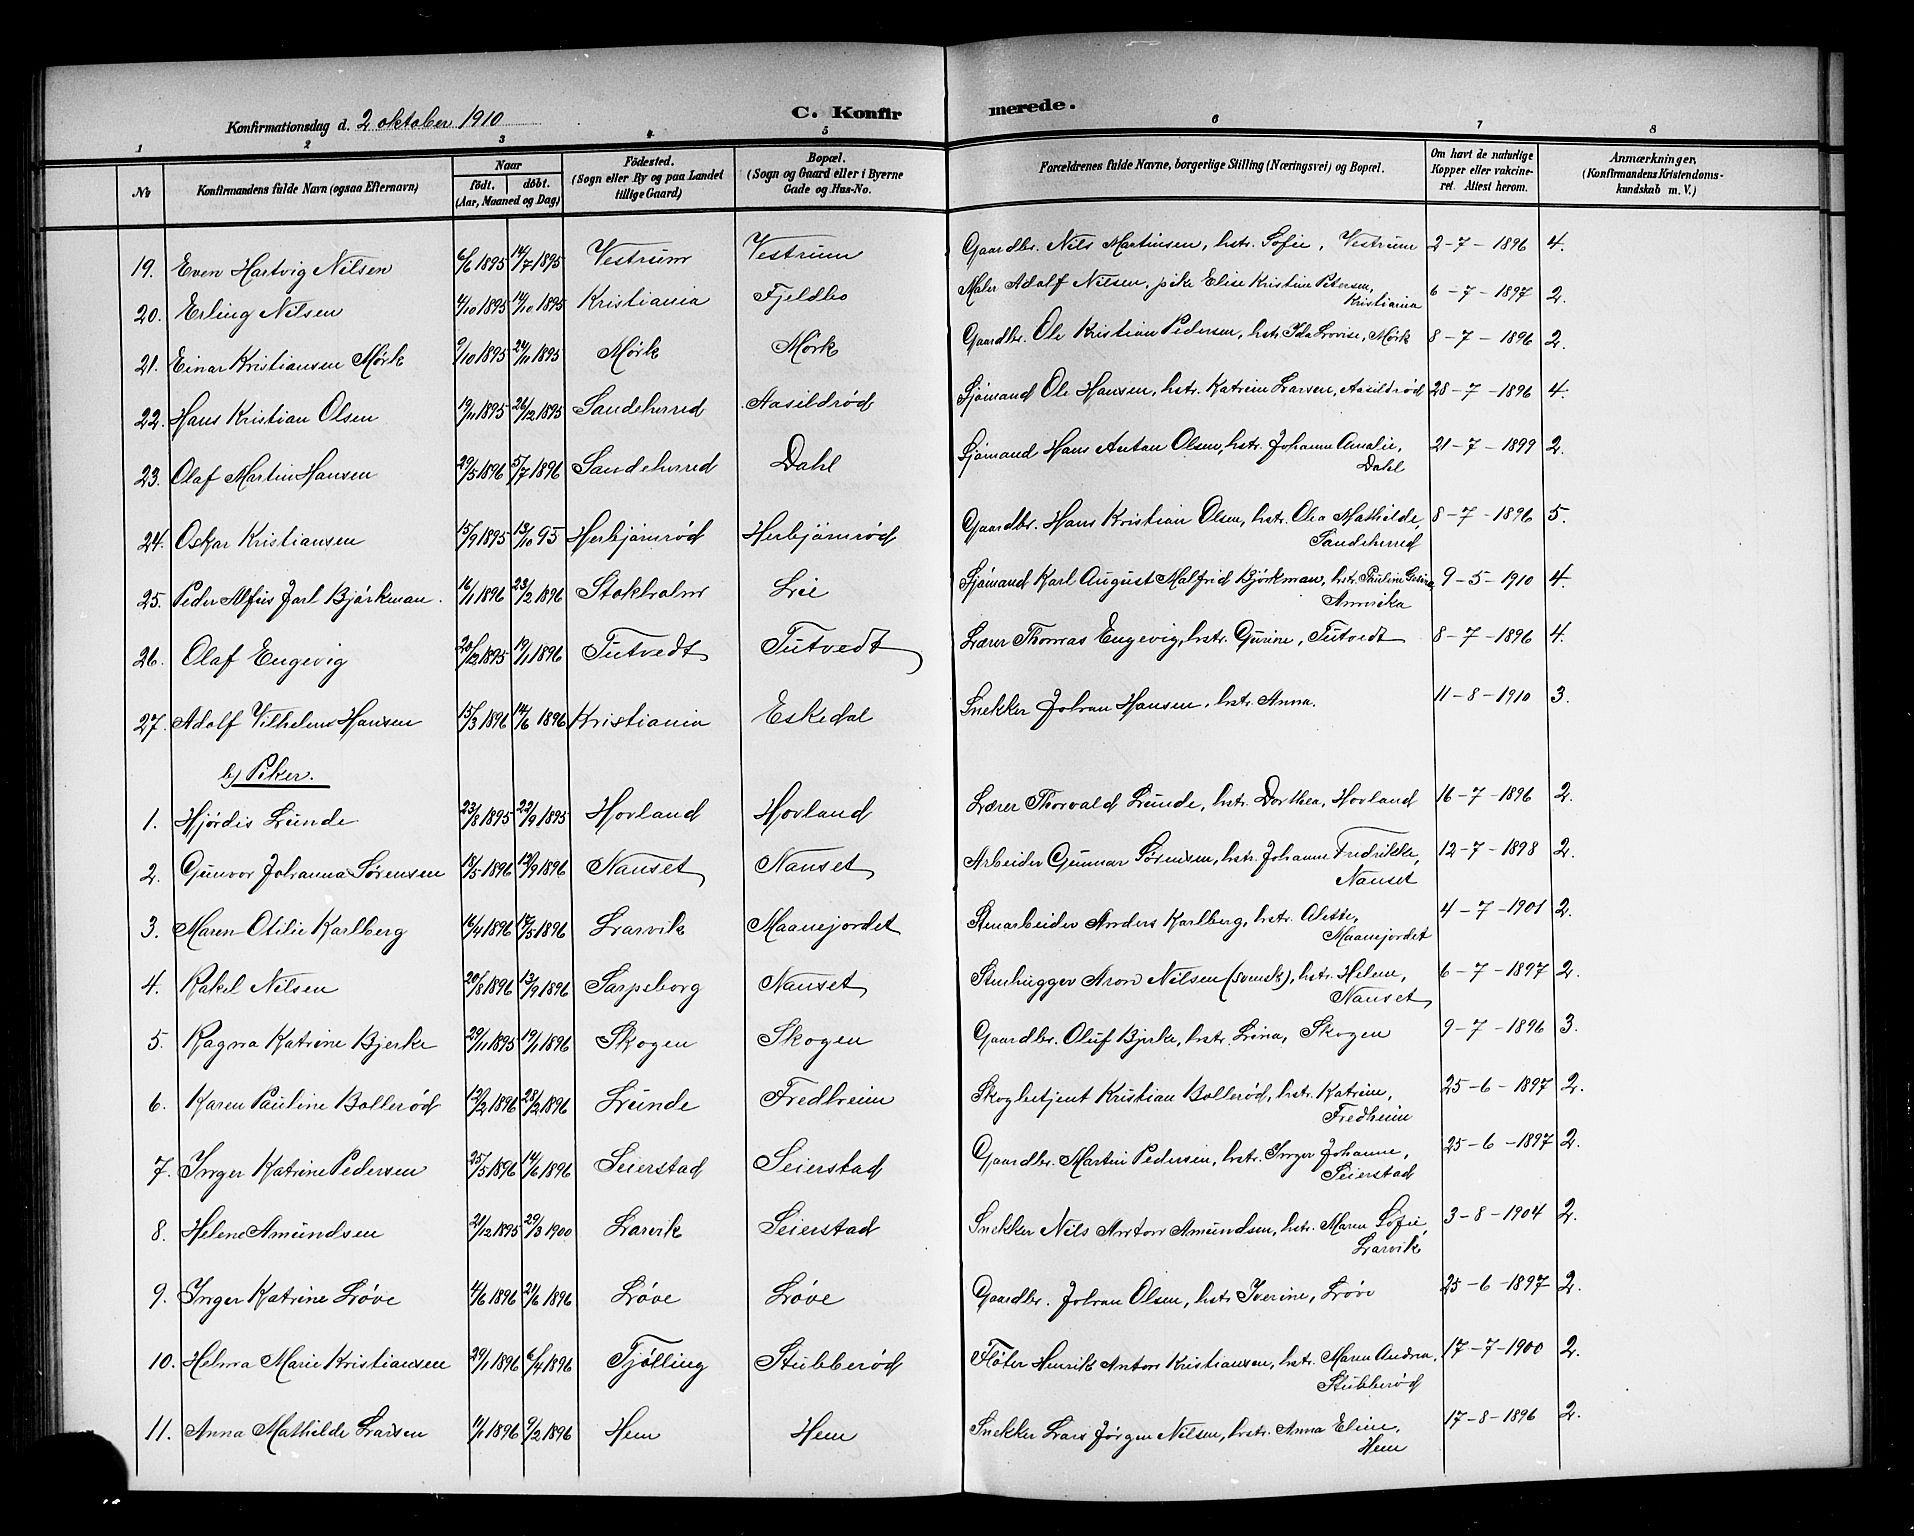 Konfirmationsdag d. 2 oktober 1910 C. Konfir merede.
1 2 3 4 5 6 7 8
No Konfirmandens fulde Navn (ogsaa Efternavn) Naar født. døbt. (Aar, Maaned og Dag) Födested. (Sogn eller By og paa Landet tillige Gaard) Bopæl. (Sogn og Gaard eller i Byerne Gade og Hus-No. Forældrenes fulde Navne, borgerlige Stilling (Næringsvei) og Bopæl. Om havt de naturlige Kopper eller vakcineret. Attest herom. Anmærkninger. (Konfirmandens Kristendomskundskab m. V.)
19. Even Hartvig Nilsen 6/6 1895 14/7 1895 Vestrum Vestrum Gaardbr. Nils Martinsen, hstr. Sofie, Vestrum 2-7-1896 4.
20. Erling Nilsen 4/10 1895 14/10 1895 Kristiania Fjeldbo Maler Adolf Nilsen, pike Elise Kristine Petersen, Kristiania 6-7-1897 2.
21. Einar Kristiansen Mørk 9/10 1895 24/11 1895 Mørk Mørk Gaardbr. Ole Kristian Pedersen, hstr. Ida Lovise, Mørk 8-7-1896 2.
22. Hans Kristian Olsen 19/11 1895 26/12 1895 Sandeherred Aasildrød Sjømand Ole Hansen, hstr. Katrine Larsen, Aasildrød 28-7-1896 4.
23. Olaf Martin Hansen 29/5 1896 5/7 1896 Sandeherred Dahl Sjømand Hans Anton Olsen, hstr. Johanne Amalie, Dahl 21-7-1899 2.
24. Oskar Kristiansen 15/9 1895 13/10 95 Herbjørnrød Herbjørnrød Gaardbr. Hans Kristian Olsen, hstr. Olea Mathilde, Sandeherred 8-7-1896 5.
25. Peder Alfius Jarl Bjørkman. 16/1 1896 23/2 1896 Stokholm Lie Sjømand Karl August Malfrid Bjørkman, hstr. Pauline Amerika 9-5-1910 4.
26. Olaf Engevig 20/12 1895 19/1 1896 Tutvedt Tutvedt Lærer Thomas Engevig, hstr. Gurine, Tutvedt 8-7-1896 4.
27. Adolf Vilhelm Hansen 15/3 1896 14/6 1896 Kristiania Eskedal Snekker Johan Hansen, hstr. Anna. 11-8-1910 3.
b) Piker.
1. Hjørdis Lunde 23/8 1895 22/9 1895 Hovland Hovland Lærer Thorvald Lunde, hstr. Dorthea, Hovland 16-7-1896 2.
2. Gunvor Johanna Sørensen 18/5 1896 13/9 1896 Nanset Nanset Arbeider Gunnar Sørensen, hstr. Johanne Fredrikke, Nanset 12-7-1898 2.
3. Maren Otilie Karlberg 16/4 1896 17/5 1896 Larvik Maanejordet Stenarbeider Anders Karlberg, hstr. Alette, Maanejordet 4-7-1901 2.
4. Rakel Nilsen 20/8 1896 13/9 1896 Sarpsborg Nanset Stenhugger Aron Nilsen (svensk), hstr. Helene, Nanset 6-7-1897 2.
5. Ragna Katrine Bjerke 29/11 1895 19/1 1896 Skogen Skogen Gaardbr. Oluf Bjerke, hstr. Lina, Skogen 9-7-1896 3.
6. Karen Pauline Bollerød 12/2 1896 28/2 1896 Lunde Fredheim Skogbetjent Kristian Bollerød, hstr. Katrine, Fredheim 25-6-1897 2.
7. Inger Katrine Pedersen 25/5 1896 14/6 1896 Seierstad Seierstad Gaardbr. Martin Pedersen, hstr. Inger Johanne, Seierstad 25-6-1897 2.
8. Helene Amundsen 21/12 1895 29/3 1900 Larvik Seierstad Snekker Nils Anton Amundsen, hstr. Maren Sofie, Larvik 3-8-1904 2.
9. Inger Katrine Løve 4/6 1896 21/6 1896 Løve Løve Gaardbr. Johan Olsen, hstr Iverine, Løve 25-6-1897 2.
10. Helma Marie Kristiansen 29/1 1896 6/4 1896 Tjølling Stubberød Fløter Henrik Anton Kristiansen, hstr. Maren Andrea, Stubberød 17-7-1900 2.
11. Anna Mathilde Larsen 11/1 1896 9/2 1896 Hem Hem Snekker Lars Jørgen Nilsen, hstr. Anna Eline, Hem 17-8-1896 2.